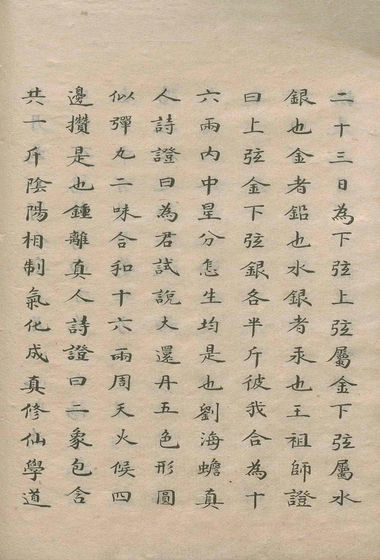 二十三日為下弦上弦屬金下弦屬水
銀也金者鉛也水銀者汞也王祖師證
曰上弦金下弦銀各半斤彼我合為十
六兩內中星分怎生均是也劉海蟾真
人詩證曰為君試說大還丹五色形圓
似彈丸二味合和十六兩周天火候四
邊攢是也鍾離真人詩證曰二象包含
共一斤陰陽相制氣化成真修仙學道